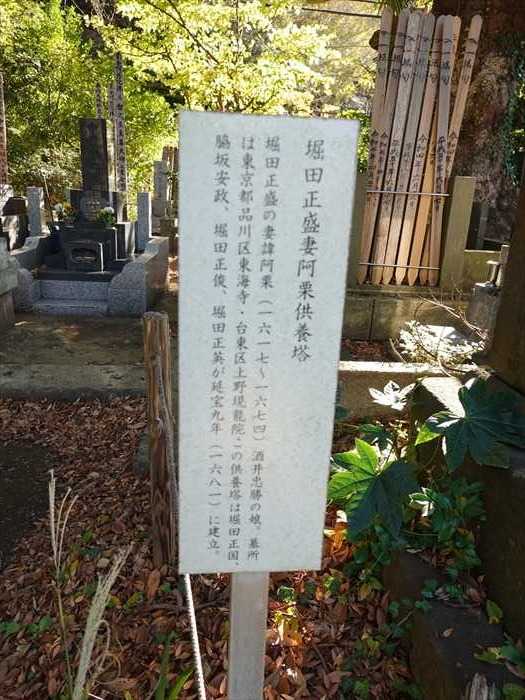 堀田正盛妻阿栗供養塔
堀田正盛の妻諱阿栗（一六一七～一六七四）酒井忠勝の娘。墓所
は東京都品川区東海寺・台東区上野現龍院・この供養塔は堀田正国、
脇坂安政、堀田正俊、堀田正英が延宝九年（一六八一）に建立。